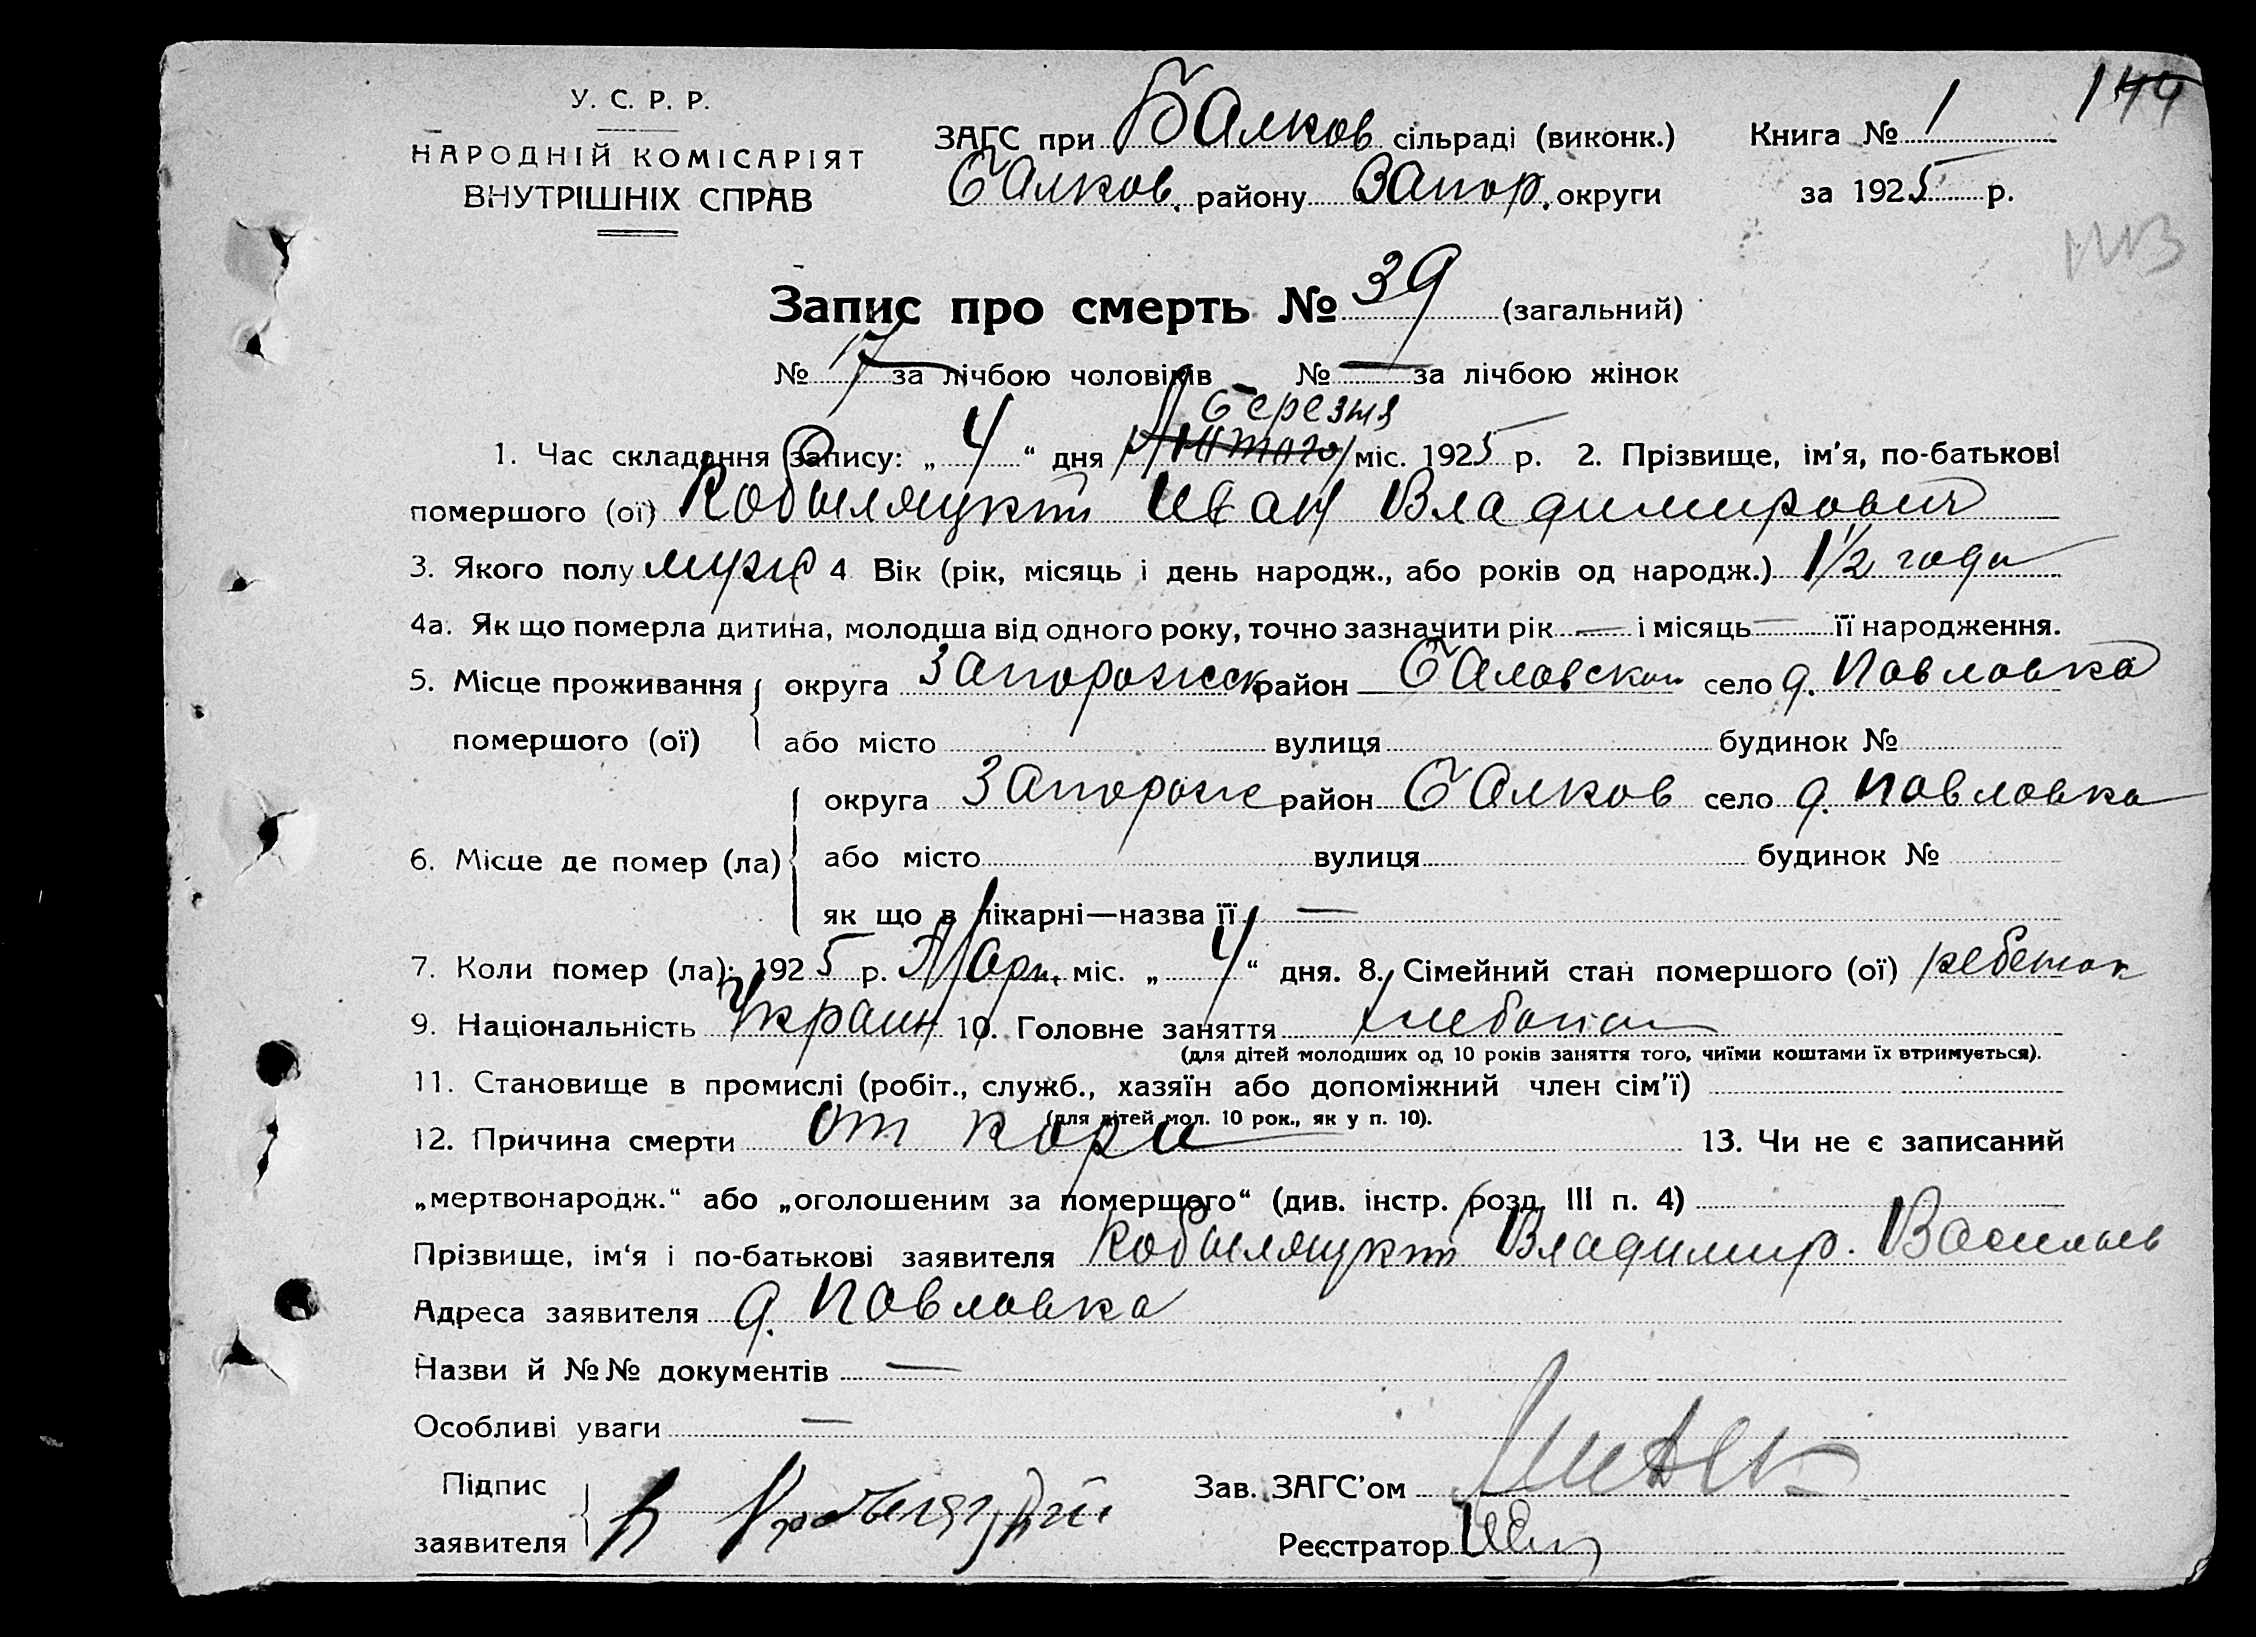 149
У. С. Р. Р.
НАРОДНІЙ КОМІСАРІЯТ
ВНУТРІШНІХ СПРАВ
ЗАГС при Балков сільраді (виконк.) Книга № 1
Балков. району Запор. округи за 1925 р.
Запис про смерть № 39 (загальний)
№ 17 за лічбою чоловіків № — за лічбою жінок
Березня
1. Час складання запису: „ 4 “ дня Лютого міс. 1925 р. 2. Прізвище, ім'я, по-батькові
помершого (ої) Кобыляцкий Иван Владимирович
3. Якого полу муж 4 Вік (рік, місяць і день народж., або років од народж.) 1½ года
4а. Як що померла дитина, молодша від одного року, точно зазначити рік — і місяць — її народження.
5. Місце проживання округа Запорожск район Балковской село д. Павловка
помершого (ої) або місто вулиця будинок №
округа Запорож район Балков село д. Павловка
6. Місце де помер (ла) або місто вулиця будинок №
як що в лікарні—назва її —
7. Коли помер (ла): 1925 р. Март. міс. „ 4 “ дня. 8. Сімейний стан помершого (ої) ребенок
9. Національність Украин 10. Головне заняття хлебопаш
(для дітей молодших од 10 років заняття того, чиїми коштами їх втримується).
11. Становище в промислі (робіт., служб., хазяїн або допоміжний член сім'ї)
(для дітей мол. 10 рок., як у п. 10).
12. Причина смерти от кори 13. Чи не є записаний
„мертвонародж.“ або „оголошеним за помершого“ (див. інстр. розд. III п. 4)
Прізвище, ім'я і по-батькові заявителя Кобыляцкий Владимир. Васильев
Адреса заявителя д. Павловка
Назви й №№ документів —
Особливі уваги —
Підпис
Зав. ЗАГС'ом
заявителя
Реєстратор